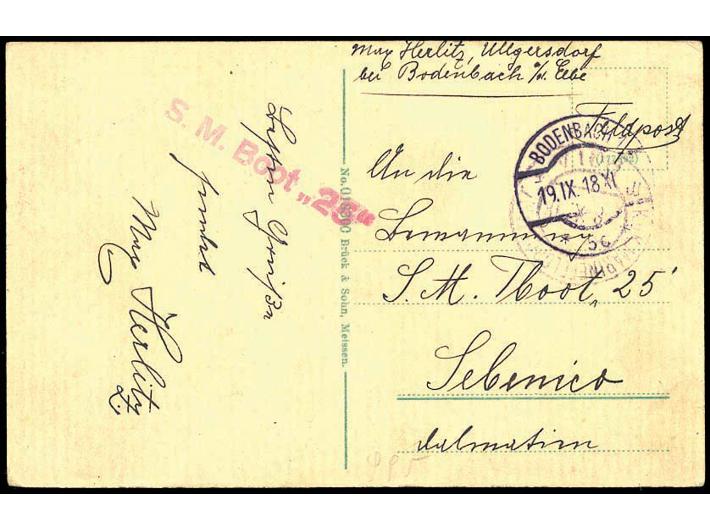 Max Herlitz, Ullgersdorf
bei Bodenbach a/d. Elbe
Feldpost
BODENBACH
19.IX.18 XI
5c
S. M. Boot „25“
An die
Bemannung
S. M. Boot „25“
Sebenico
Dalmatien
Besten Gruß
sendet
Max Herlitz
Brück & Sohn, Meissen.